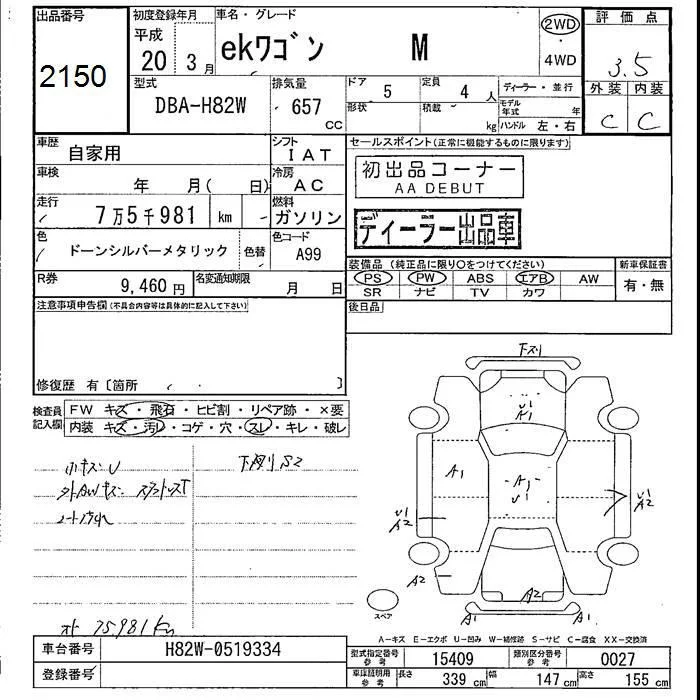 出品番号
2150
初度登録年月
平成
20 3月
車名・グレード
ekワゴン M
2WD
・
4WD
評価点
3.5
外装 内装
C C
型式
DBA-H82W
排気量
657
cc
ドア
5
定員
4 人
形状
積載
kg
ディーラー・並行
モデル年式 年
ハンドル 左・右
車歴
自家用
シフト
IAT
車検
年 月( 日)
冷房
AC
走行
7万5千981 km
燃料
ガソリン
色
ドーンシルバーメタリック
色替
色コード
A99
R券
9,460 円
名変通知期限
月 日
セールスポイント(正常に機能するものに限ります)
初出品コーナー
AA DEBUT
ディーラー出品車
装備品(純正品に限り○をつけてください)
新車保証書
PS PW ABS エアB AW
SR ナビ TV カワ
有・無
後日品
注意事項申告欄(不具合内容等は具体的に記入して下さい)
修復歴 有〔箇所 〕
検査員
記入欄
FW キズ・飛石・ヒビ割・リペア跡・×要
内装 キズ・汚レ・コゲ・穴・スレ・キレ・破レ
小キズU
下廻りS2
外AWキズ
シート汚れ
オト 75981km
下スリ
U1
A1
A1
A1
U1
U1
A2
A2
A2
A1
A1
スペア
A-キズ E-エクボ U-凹み W-補修跡 S-サビ C-腐食 XX-交換済
車台番号
H82W-0519334
登録番号
型式指定番号
参考
15409
類別区分番号
参考
0027
車庫証明用
参考
長さ
339 cm
幅
147 cm
高さ
155 cm